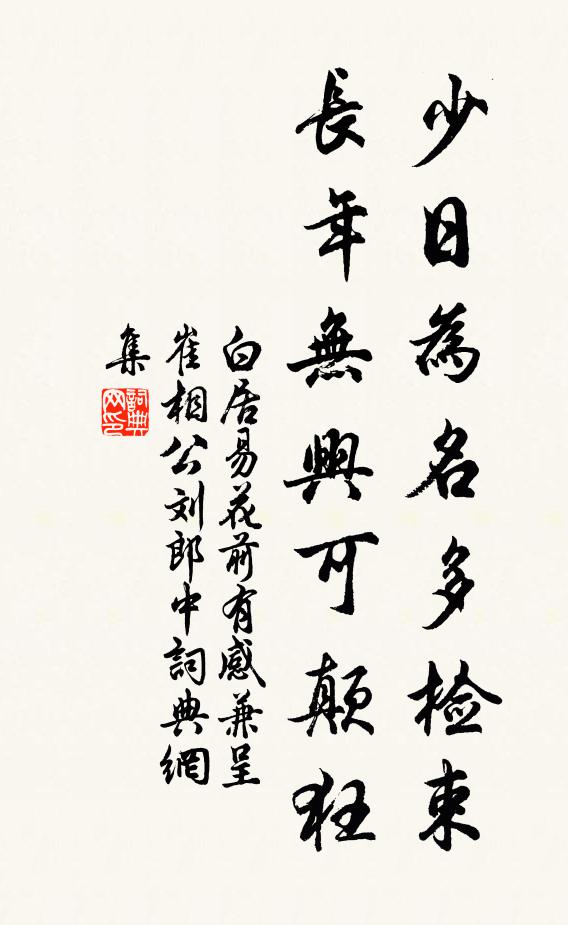 少日為名多检束
長年無興可顛狂
白居易花前有感兼呈
崔相公刘郎中詞典網
集
詞典
网印